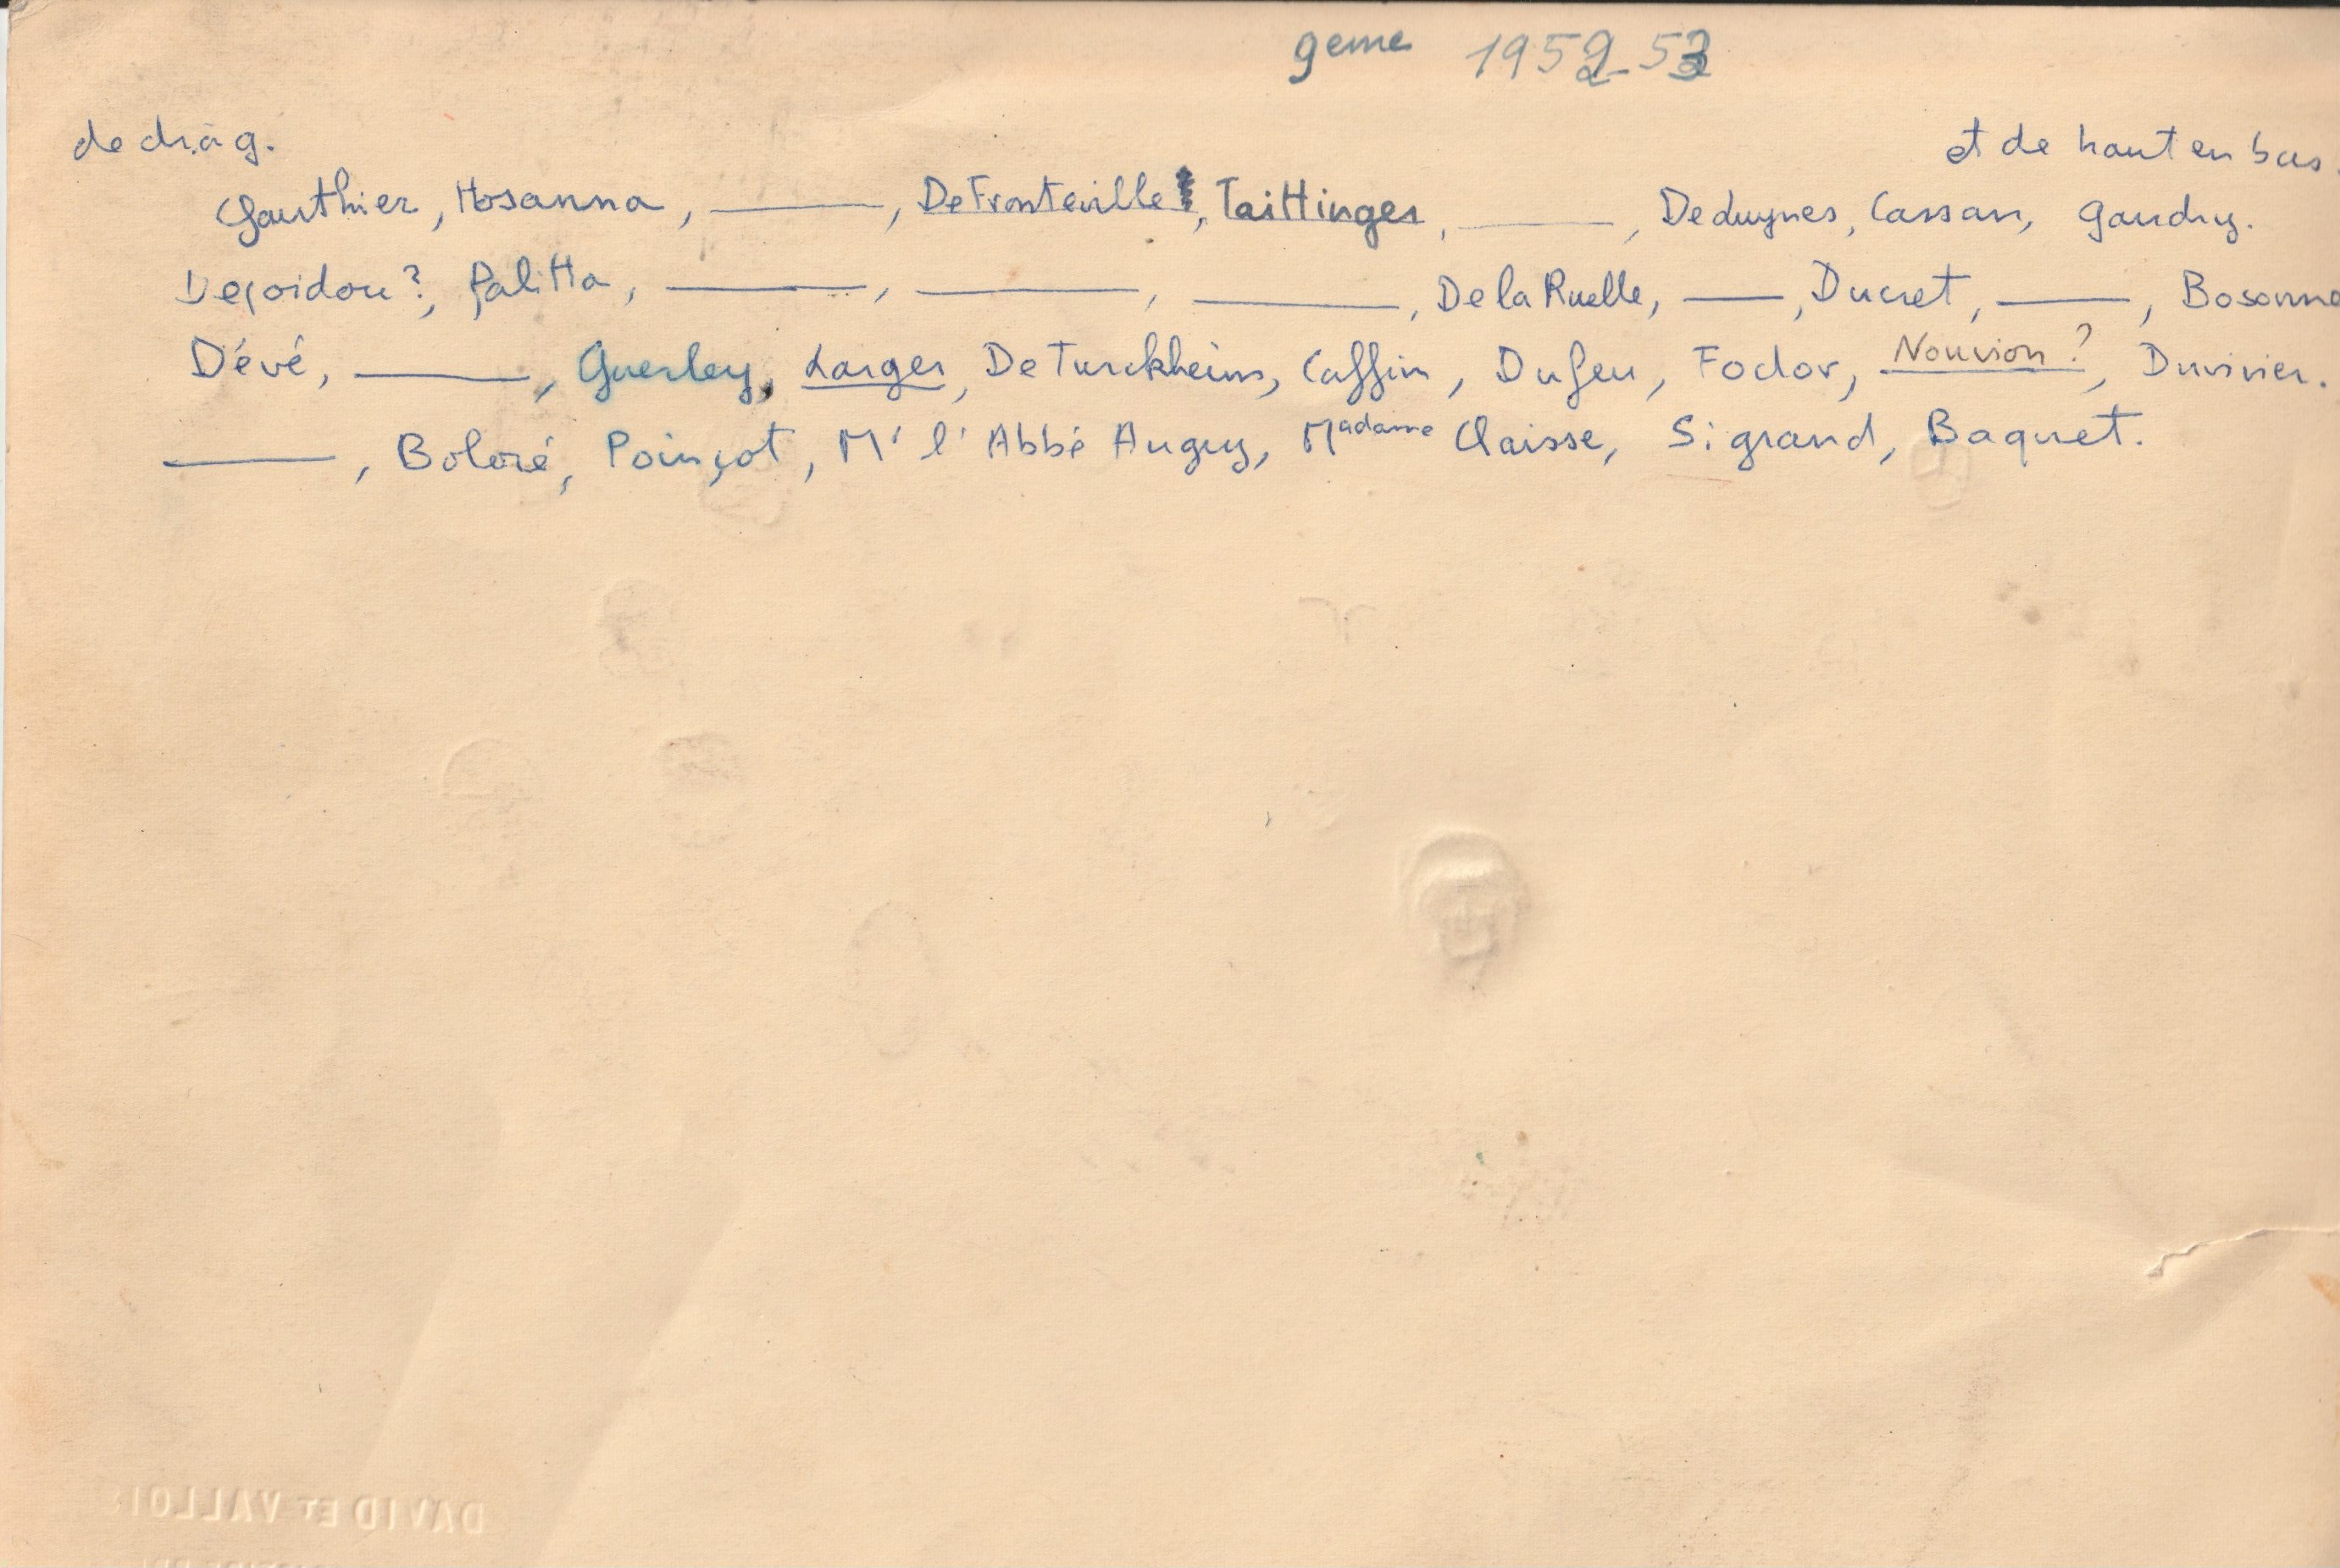 9eme 1952-53
de dr.à g. et de haut en bas.
Gauthier, Hosanna, ______, De Fronteville, Taittinger, ______, De Luynes, Cassan, Gaudry.
Palitta, ______, ______, ______, De la Ruelle, ____, Ducret, ____, Bosonna
Dévé, ______, Guerley, Larger, De Turckheim, Caffin, Dufeu, Fodor, Nouvion ?, Duvivier.
______, Boloré, Poinçot, Mr l'Abbé Auguy, Madame Claisse, Sigrand, Baquet.
DAVID ET VALLOIS